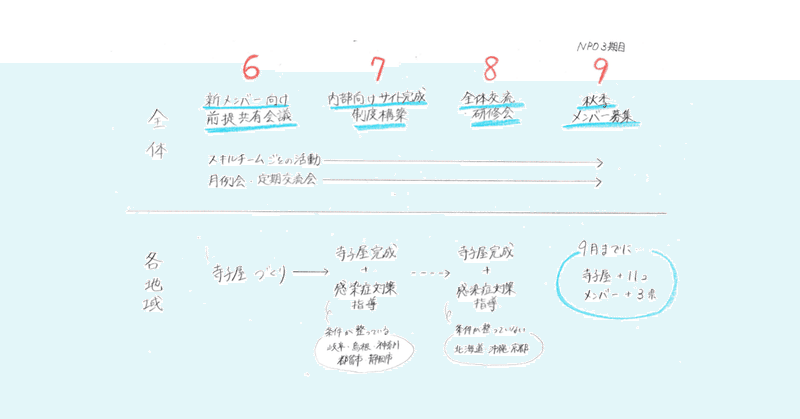 NPO3期目
6 7 8 9
新メンバー向け
前提共有会議
内部向けサイト完成
制度構築
全体交流
研修会
秋季
メンバー募集
全体
スキルチームごとの活動
月例会・定期交流会
各地域
寺子屋づくり
寺子屋完成
+
感染症対策
指導
条件が整っている
岐阜・島根・神奈川
都留市・静岡市
寺子屋完成
+
感染症対策
指導
条件が整っていない
北海道・沖縄・京都
9月までに…
寺子屋+11コ
メンバー+3